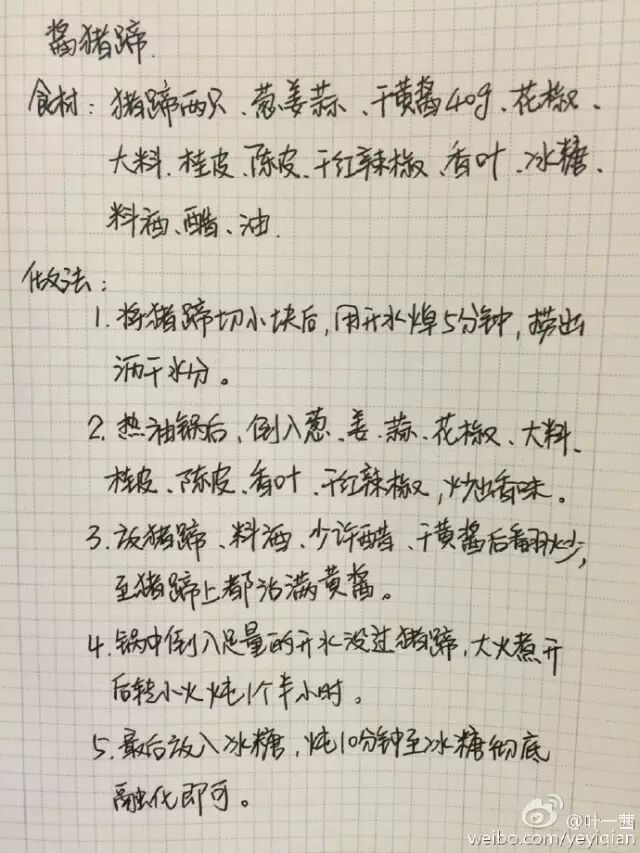 酱猪蹄.
食材：猪蹄两只、葱姜蒜、干黄酱40g、花椒、
大料、桂皮、陈皮、干红辣椒、香叶、冰糖、
料酒、醋、油.
做法：
1. 将猪蹄切小块后，用开水焯5分钟，捞出
沥干水分。
2. 热油锅后，倒入葱、姜、蒜、花椒、大料、
桂皮、陈皮、香叶、干红辣椒，炒出香味。
3. 放猪蹄、料酒、少许醋、干黄酱后翻炒，
至猪蹄上都沾满黄酱。
4. 锅中倒入足量的开水没过猪蹄，大火煮开
后转小火炖1个半小时。
5. 最后放入冰糖，炖10分钟至冰糖彻底
融化即可。
@叶一茜
weibo.com/yeyiqian